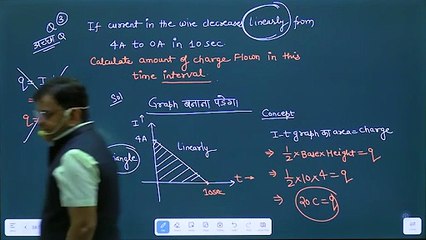 Q③
अच्छा Q
If current in the wire decreases linearly from
4A to 0A in 10sec
Calculate amount of charge Flown in this
time interval.
q = I
q =
Sol
Graph बनाना पडेगा
Concept
I↑
4A
Linearly
10sec
t →
I-t graph का area = charge
⇒ 1/2 × Base × Height = q
⇒ 1/2 × 10 × 4 = q
⇒ 20C = q